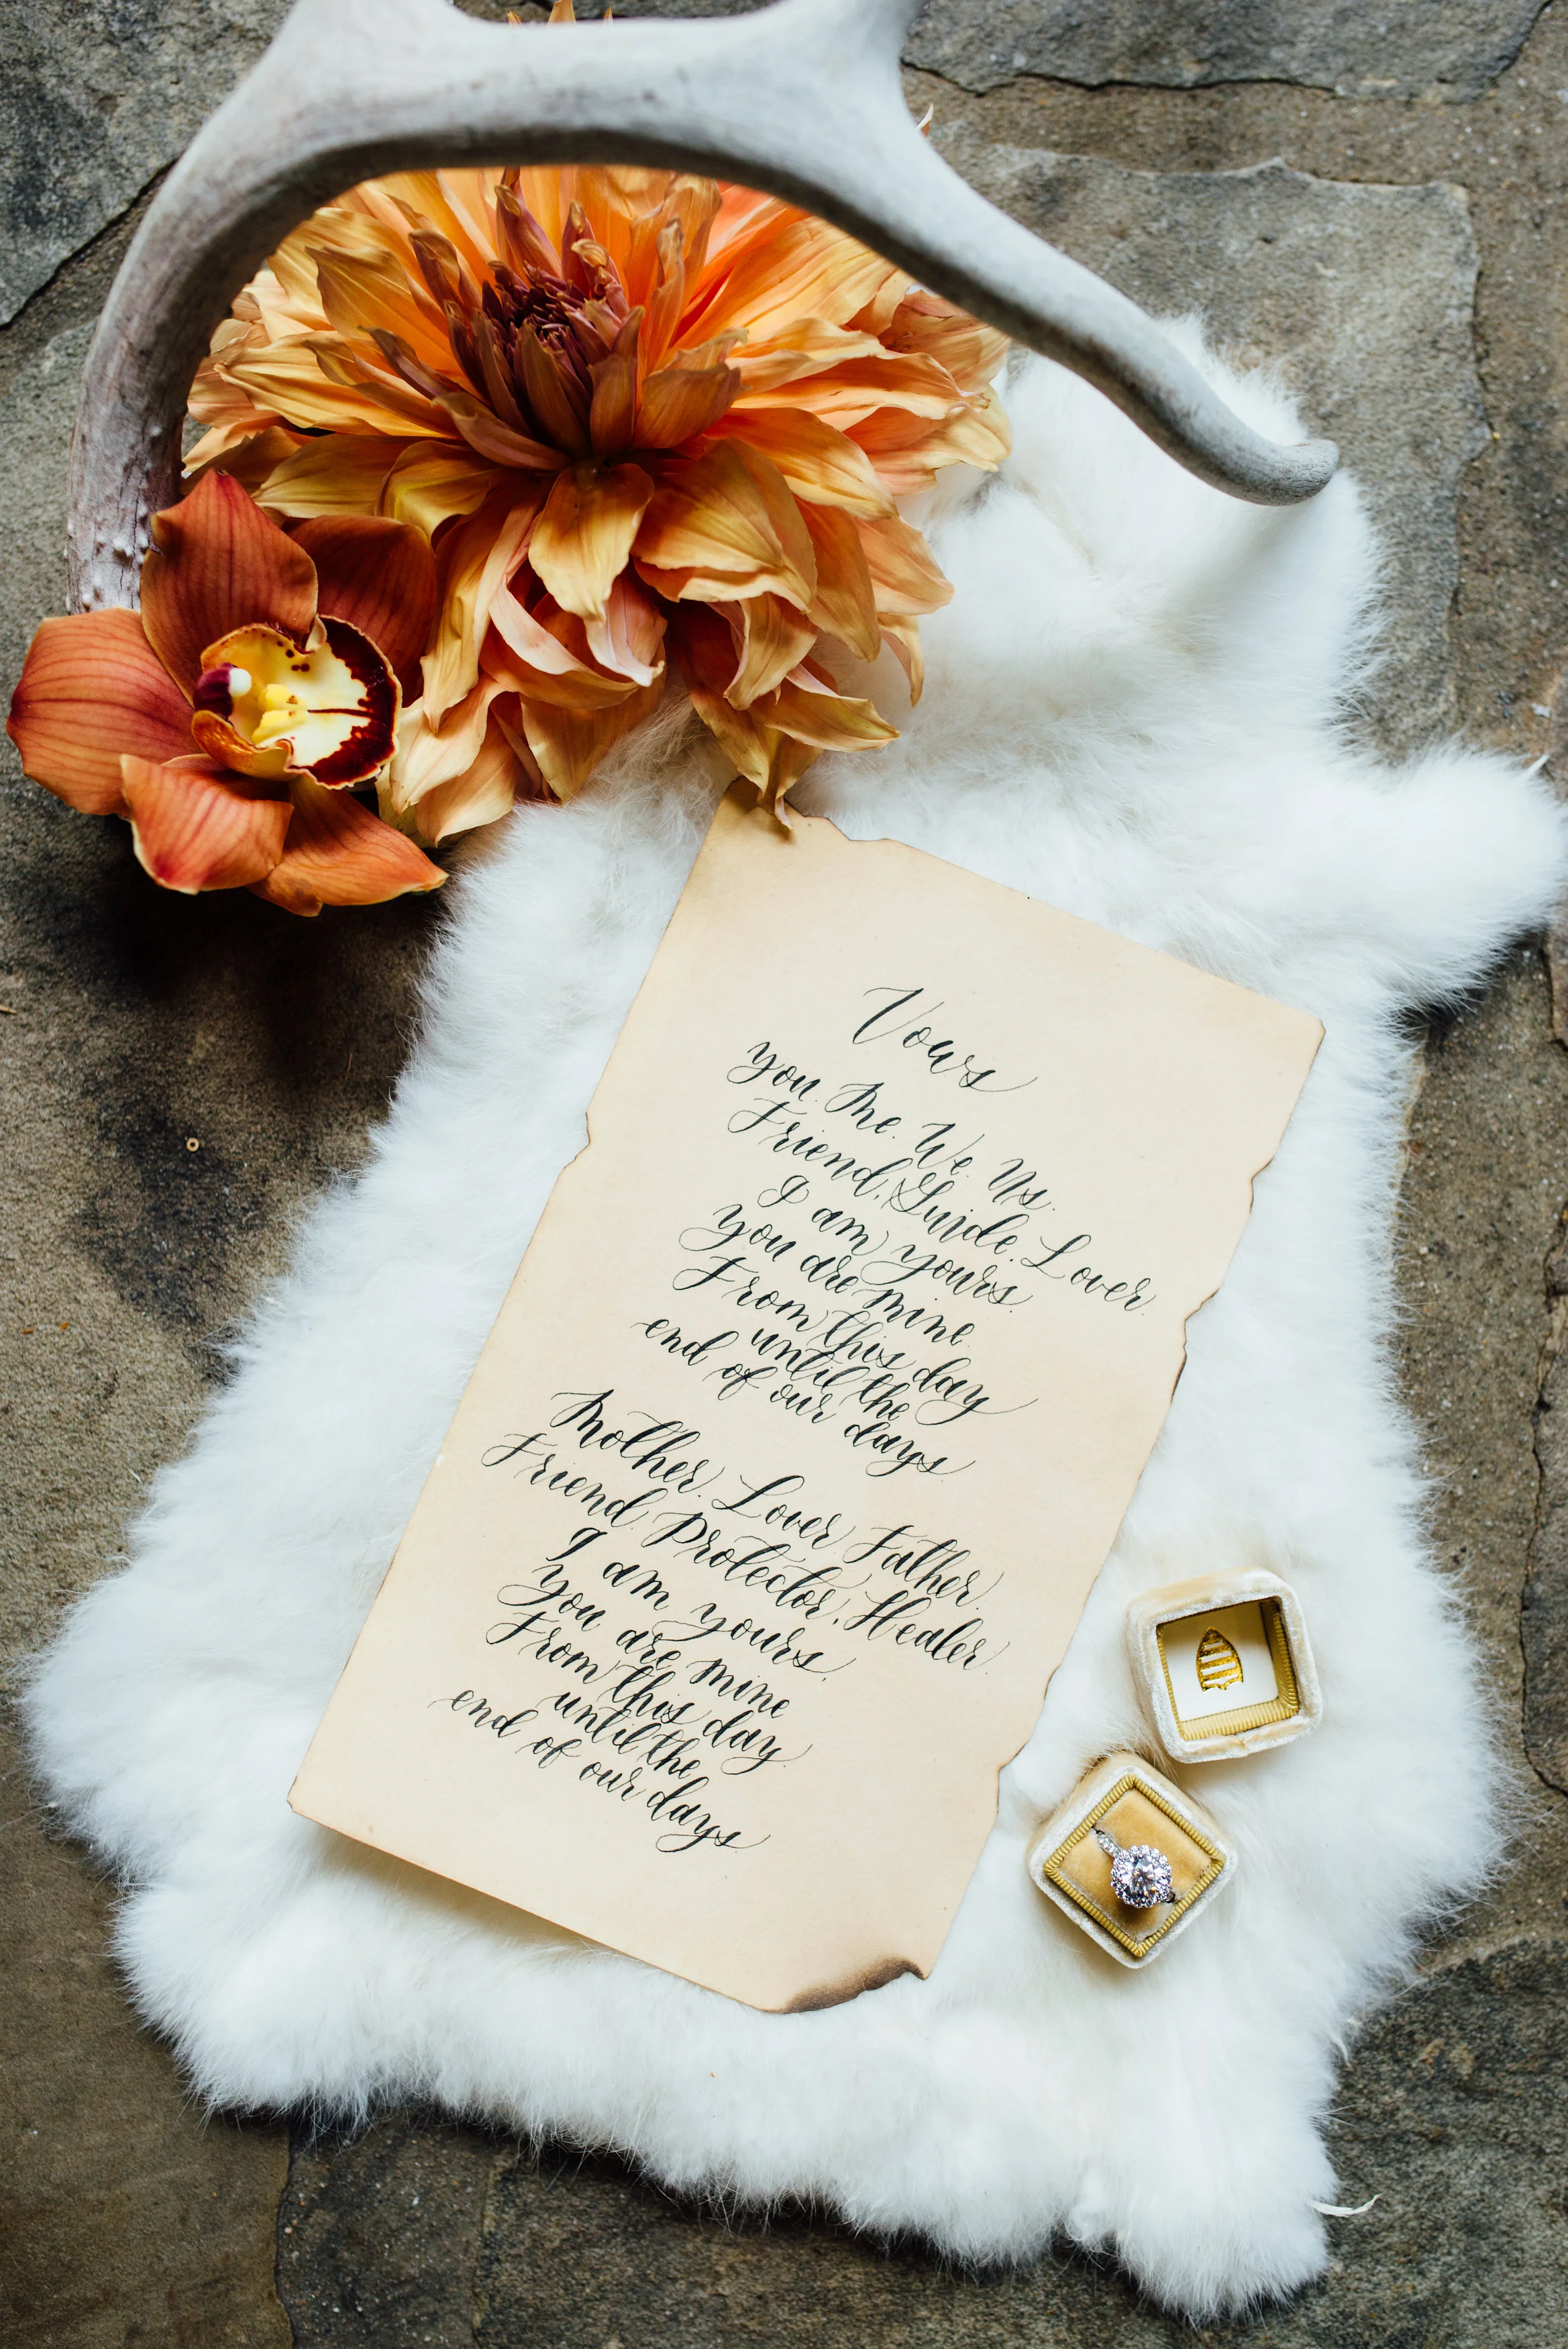 Vows
You. Me. We. Us.
Friend. Guide. Lover
I am yours.
You are mine.
From this day
until the
end of our days
Mother. Lover. Father.
Friend. Protector. Healer.
I am yours.
You are mine
From this day
until the
end of our days